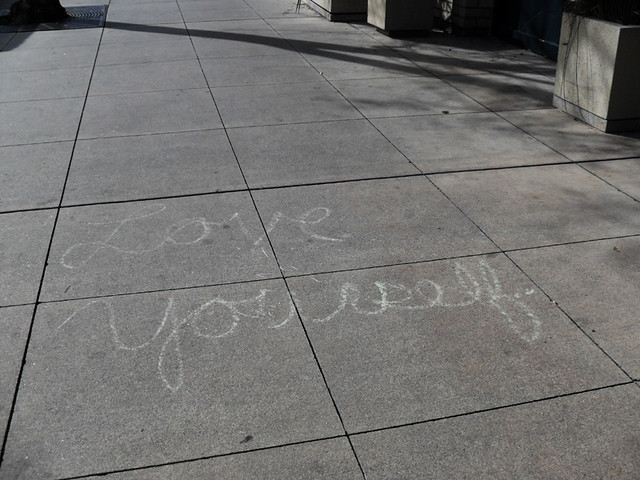 Love
Yourself.